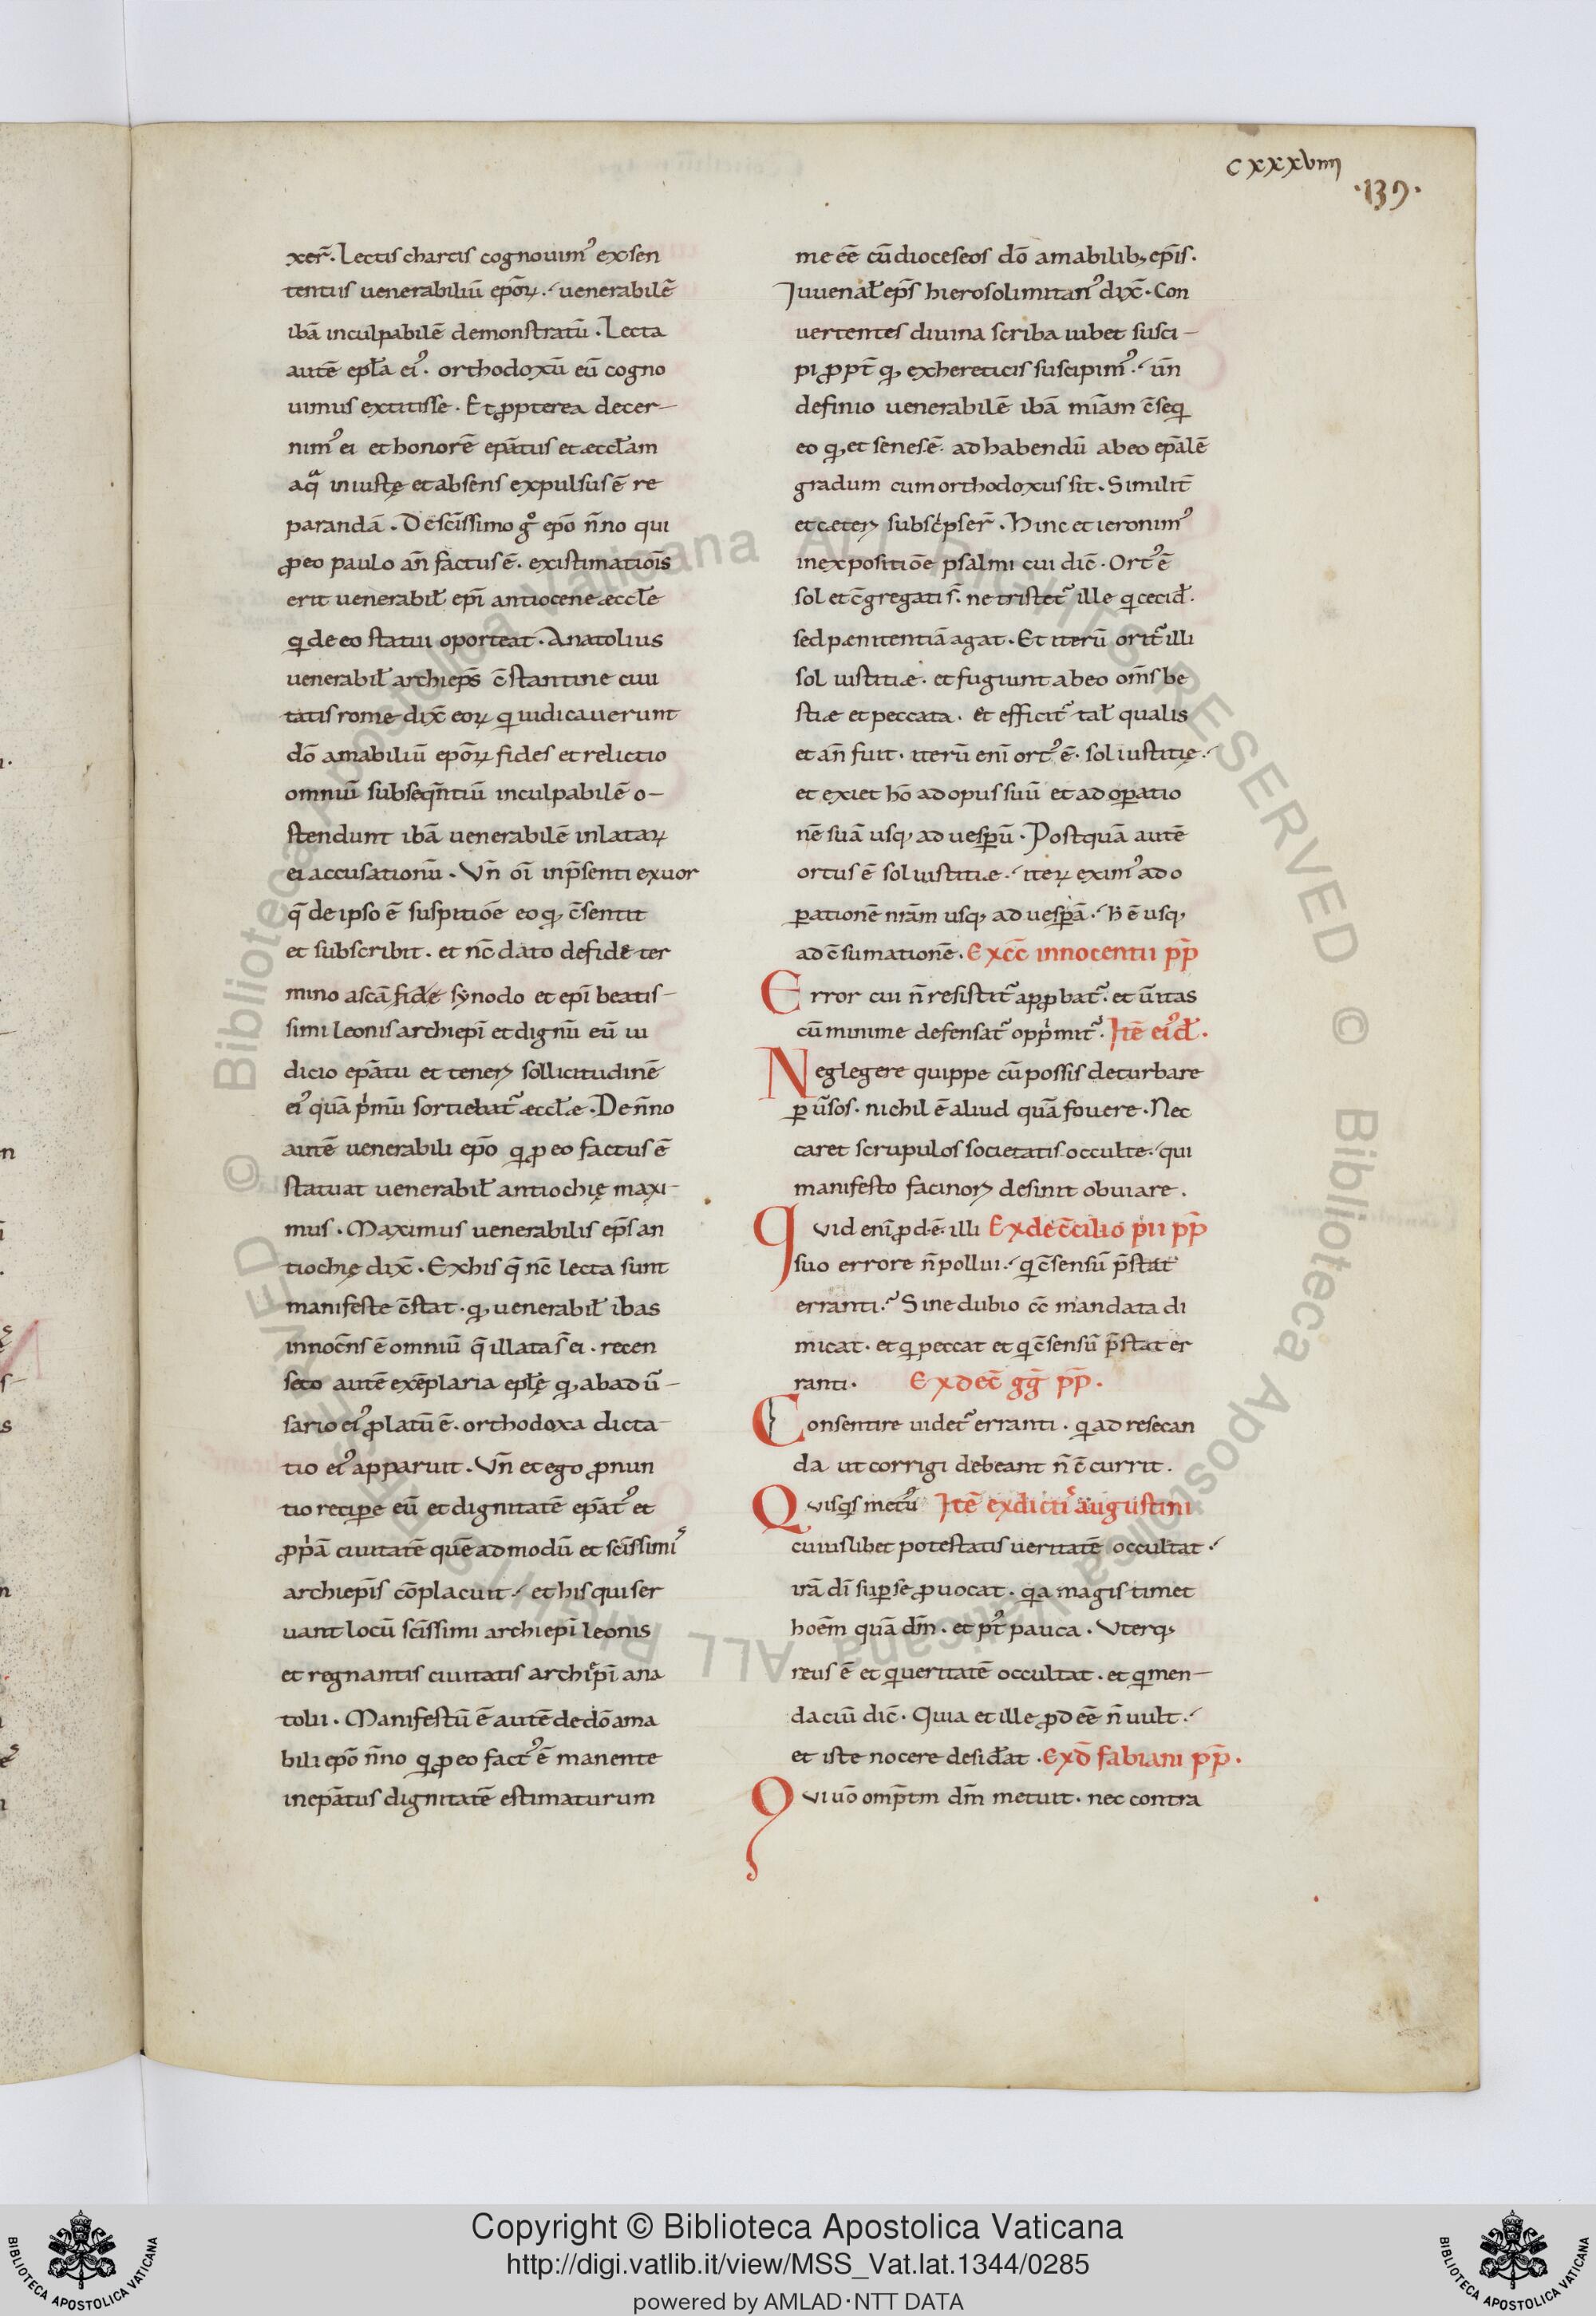 cxxxvıııı
·139·
xer̄. Lectis chartis cognouim᾿ ex sen
tentiis uenerabiliū ep̄oꝝ. uenerabilē
ibā inculpabilē demonstratū. Lecta
autē ep̄la ei᾿. orthodoxū eū cogno
uimus extitisse. Et ꝓpterea decer-
nim᾿ ei et honorē ep̄atus et æccl̄am
a q̄ iniustę et absens expulsus ē re
parandā. De sc̄issimo gͦ ep̄o n̄no qui
ꝓ eo paulo an̄ factus ē. existimatiōis
erit uenerabil̄ ep̄i antiocene æccl̄e
qđ de eo statui oporteat. Anatolius
uenerabil̄ archiep̄s c̄stantine ciui
tatis rome dix̄ eoꝝ qui iudicauerunt
dō amabiliū ep̄oꝝ fides et relictio
omniū subseq̄ntiū inculpabilē o-
stendunt ibā uenerabilē inlataꝝ
ei accusationū. Vn̄ oī in p̄senti exuor
q̄ de ipso ē suspitiōe eo qđ c̄sentit
et subscribit. et nc̄ dato de fide ter
mino a sc̄a fide synodo et ep̄i beatis-
simi leonis archiep̄i et dignū eū iu
dicio ep̄atu et teneꝝ sollicitudinē
ei᾿ quā p̄mū sortiebat᾿ æccl̄æ. De n̄no
autē uenerabili ep̄o qui ꝓ eo factus ē
statuat uenerabil̄ antiochię maxi-
mus. Maximus uenerabilis ep̄s an
tiochię dix̄. Ex his q̄ nc̄ lecta sunt
manifeste c̄stat. qđ uenerabil̄ ibas
innoc̄ns ē omniū q̄ illata s̄ ei. recen
seto autē exēplaria ep̄lę qđ ab adū-
sario ei᾿ ꝓlatū ē. orthodoxa dicta-
tio ei᾿ apparuit. Vn̄ et ego ꝓnun
tio recipe eū et dignitatē ep̄at᾿ et
ꝓp̄ā ciuitatē quē admodū et sc̄issimi᾿
archiep̄is cōplacuit. et his qui ser
uant locū sc̄issimi archiep̄i leonis
et regnantis ciuitatis archiep̄i ana
tolii. Manifestū ē autē de dō ama
bili ep̄o n̄no qui ꝓ eo fact᾿ ē manente
in ep̄atus dignitatē estimaturum
me eē cū dioceseos dō amabilibꝫ ep̄is.
Iuuenal̄ ep̄s hierosolimitan᾿ dix̄. Con
uertentes diuina scriba iubet susci-
pi ꝓpt̄ qđ ex hereticis suscipim᾿. un̄
definio uenerabilē ibā mīam c̄seq
eo qđ et senes ē. ad habendū ab eo ep̄alē
gradum cum orthodoxus sit. Similit̄
et cæteꝝ subsc̄pser̄. Hinc et ieronim᾿
in expositiōe psalmi cui dic̄. Ort᾿ ē
sol et c̄gregati s̄. ne tristet᾿ ille qui cecid̄.
sed pænitentiā agat. Et iterū orit᾿ illi
sol iustitiæ. et fugiunt ab eo om̄s be
stiæ et peccata. et efficit᾿ tal̄ qualis
et an̄ fuit. iterū eni ort᾿ ē. sol iustitię.
et exiet hō ad opus suū et ad oꝑatio
nē suā usqꝫ ad uesꝑū. Postquā autē
ortus ē sol iustitiæ. iteꝝ exim᾿ ad o
ꝑationē nr̄am usqꝫ ad uesꝑā. h̄ ē usqꝫ
ad c̄sumationē. Ex c̄c̄ innocentii pp̄
Error cui n̄ resistit᾿ apꝓbat᾿. et ūitas
cū minime defensat᾿ opp̄mit᾿. Itē ei᾿d̄.
Neglegere quippe cū possis deturbare
ꝑūsos. nichil ē aliud quā fouere. Nec
caret scrupulos societatis occulte. qui
manifesto facinoꝝ desinit obuiare.
Quid eni ꝓd ē illi Ex de c̄cilio pii pp̄
suo errore n̄ pollui. qui c̄sensū p̄stat
erranti. Sine dubio c̄c mandata di
micat. et qui peccat et qui c̄sensū p̄stat er
ranti. Ex dec̄ gḡ pp̄.
Consentire uidet᾿ erranti. qui ad resecan
da ut corrigi debeant n̄ c̄currit.
Quisqs metū Itē ex dictis augustini
cuiuslibet potestatis ueritatē occultat.
irā dī sup se ꝓuocat. qa magis timet
hoēm quā dm̄. et pt᾿ pauca. Vterqꝫ
reus ē et qui ueritatē occultat. et qui men-
daciū dic̄. Quia et ille ꝓdeē n̄ uult.
et iste nocere desid̄at. Ex d̄ fabiani pp̄.
Qui uō omp̄tm dm̄ metuit. nec contra
© Biblioteca Apostolica Vaticana ALL RIGHTS RESERVED © Biblioteca Apostolica Vaticana ALL RIGHTS RESERVED
Copyright © Biblioteca Apostolica Vaticana
http://digi.vatlib.it/view/MSS_Vat.lat.1344/0285
powered by AMLAD·NTT DATA
BIBLIOTECA APOSTOLICA VATICANA
BIBLIOTECA APOSTOLICA VATICANA